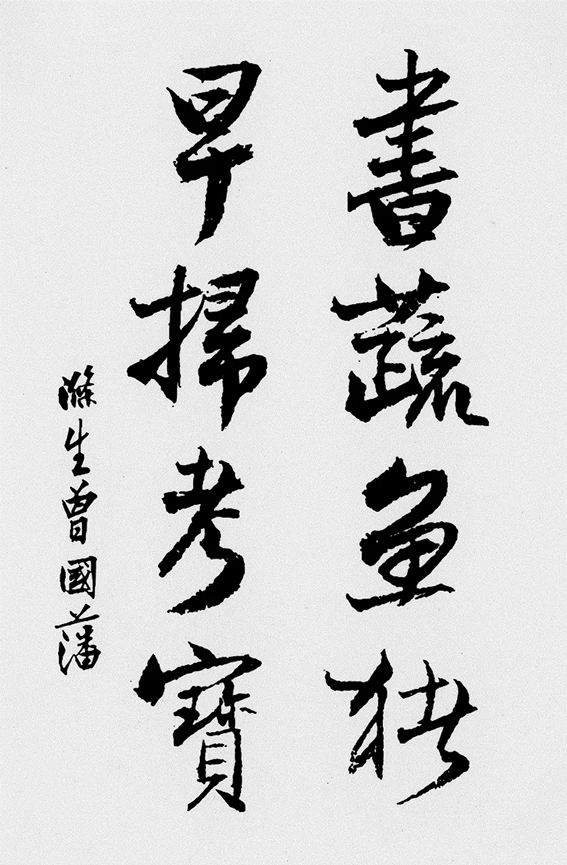 書蔬魚猪
早掃考寶
滌生曾國藩